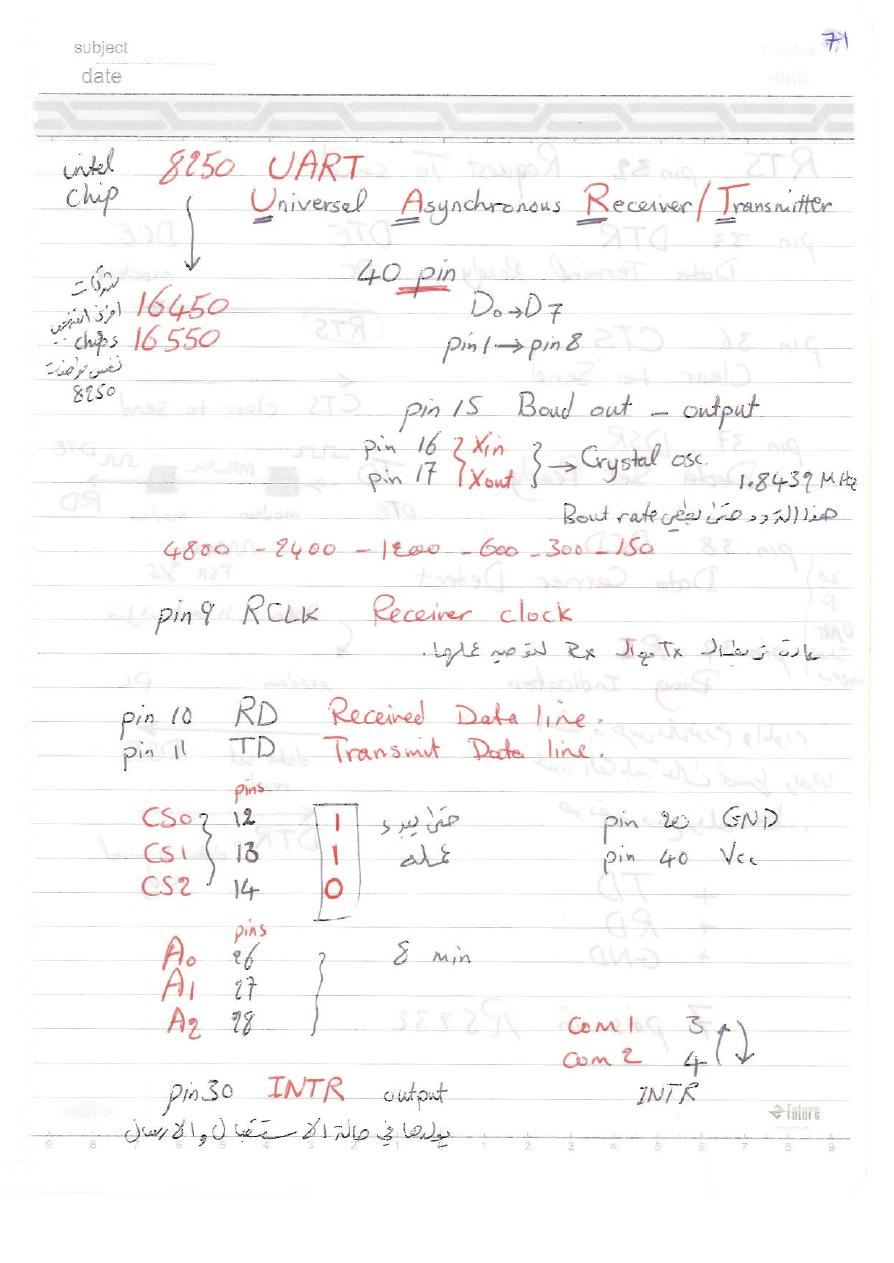 71
subject
date
intel 8250 UART
chip Universal Asynchronous Receiver/Transmitter
40 pin
شركات 16450 D0→D7
اخرى
chips 16550 pin 1 → pin 8
نفس مواصفات
8250
pin 15 Boud out - output
pin 16 Xin
pin 17 Xout → Crystal osc. 1.8432 MHz
هذا التردد حتى يعطي Bout rate
4800 - 2400 - 1200 - 600 - 300 - 150
pin 9 RCLK Receiver clock
عادة Tx Rx
pin 10 RD Received Data line.
pin 11 TD Transmit Data line.
pins
CS0 12 1 حتى يبدء pin 20 GND
CS1 13 1 عمله pin 40 Vcc
CS2 14 0
pins
A0 26 8 min
A1 27
A2 28 Com 1 3
Com 2 4
pin 30 INTR output INTR
future
يولدها في حالة الاستقبال والارسال
9 8 7 6 5 4 3 2 1 1 2 3 4 5 6 7 8 9